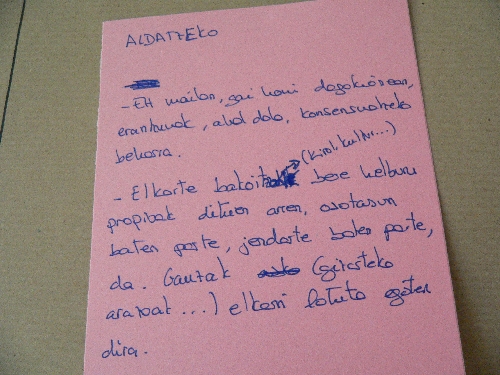 ALDATZEKO
- EH mailan, gai honi dagokionean,
erantzunak, ahal dala, konsensuatzeko
beharra.
(kirol. kultur...)
- Elkarte bakoitzak bere helburu
propioak dituen arren, osotasun
baten parte, jendarte baten parte,
da. Gauzak (gizarteko
arazoak ...) elkarri lotuta egoten
dira.